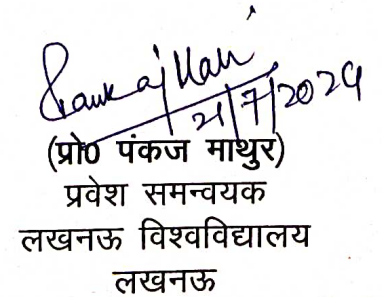 Pankaj
21/7/2024
(प्रो0 पंकज माथुर)
प्रवेश समन्वयक
लखनऊ विश्वविद्यालय
लखनऊ